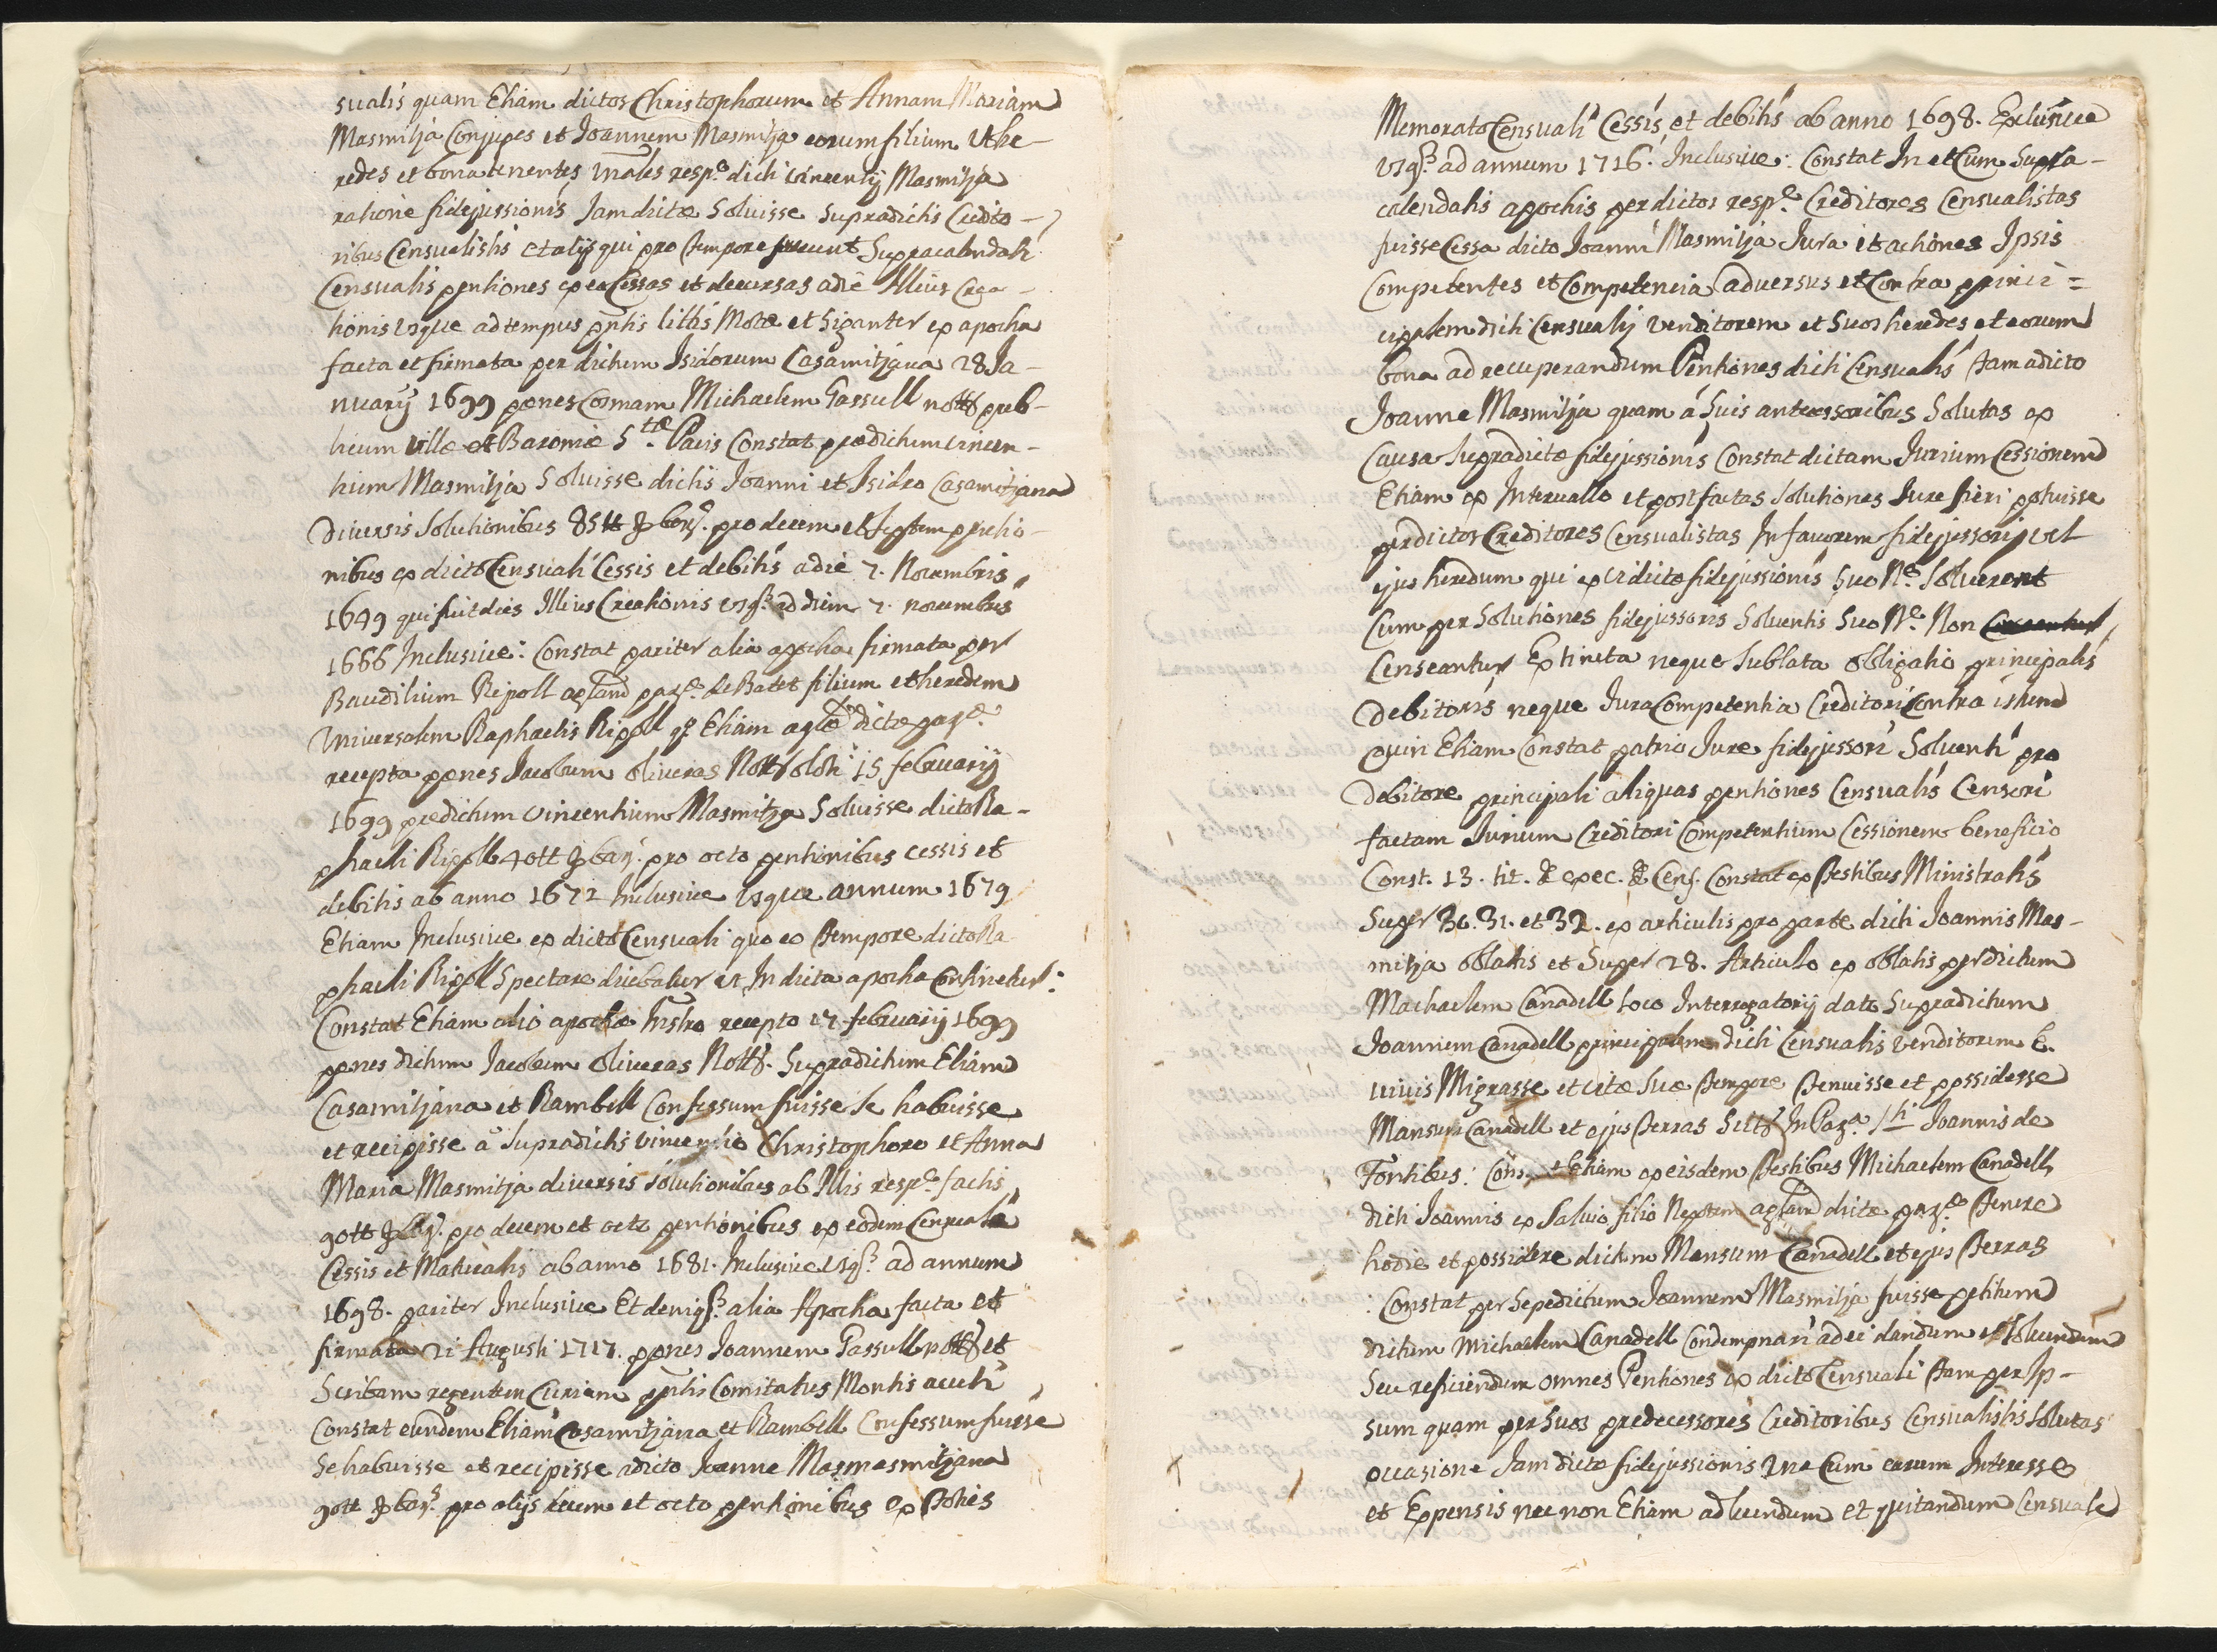 sualis quam Etiam dictos Christophorum et Annam Mariam
Masmitja Conjuges et Joannem Masmitja eorum filium Vt he-
redes et bona tenentes resp.e dicti vincentij Masmitja
ratione fidejussionis Jamdictæ Soluisse Supradictis Credito-
ribus Censualistis et alijs qui pro tempore fuerunt Supracalendati
Censualis pentiones ex eo Cessas et decursas a die Illius Crea-
tionis usque ad tempus pntis littis Motæ et Siganter ex apocha
facta et firmata per dictum Isidorum Casamitjana 28 Ja-
nuarij 1699 penes Cosmam Michaelem Gassull nott pub-
licum villæ et Baroniæ S.tæ Pacis Constat prædictum vincen-
tium Masmitja Soluisse dictis Joanni et Isidro Casamitjana
Diversis Solutionibus 85 tt bar.s pro decem et Septem pentio-
nibus ex dicto Censuali Cessis et debitis a die 7. Novembris
1649 qui fuit dies Illius Creationis usq. ad diem 7. novembris
1666 Inclusive: Constat pariter alia apocha firmata per
Baudilium Ripoll par.æ de Batet filium et heredem
Universalem Raphaelis Ripoll q.o Etiam agl.æ dictæ par.æ
recepta penes Jacobum oliveras Nott oloti 15 februarij
1699 predictum vincentium Masmitja Soluisse dicto Ra-
phaeli Ripoll 40 tt bar.s pro octo pentionibus cessis et
debitis ab anno 1672 Inclusive usque annum 1679
Etiam Inclusive ex dicto Censuali quo eo tempore dicto Ra
phaeli Ripoll Spectare dicebatur ut In dicta apocha Continetur:
Constat Etiam alio apochæ Instro recepto 17 februarij 1699
penes dictum Jacobum oliveras Nott. Supradictum Eliam
Casamitjana et Rambell Confessum fuisse Se habuisse
et recepisse a Supradictis vincentio Christophoro et Anna
Maria Masmitja diversis Solutionibus ab Illis resp.e factis
90 tt bar.s pro decem et octo pentionibus ex eodem Censuali
Cessis et Maturatis ab anno 1681. Inclusive usq. ad annum
1698. pariter Inclusive Et deniq. alia Apocha facta et
firmata 21 Augusti 1717. penes Joannem Gassull nott et
Scribam regentem Curiam pntis Comitatus Montis acuti
Constat eundem Eliam Casamitjana et Rambell Confessum fuisse
Se habuisse et recipisse a dicto Joanne Masmasmitjana
90 tt bar.s pro alijs decem et octo pentionibus ex
Memorato Censuali Cessis et debitis ab anno 1698. Exclusive
usq. ad annum 1716. Inclusive: Constat In et Cum Supra-
calendatis apochis per dictos resp.e Creditores Censualistas
fuisse Cessa dicto Joanni Masmitja Jura et actiones Ipsis
Competentes et Competencia adversus et Contra princi=
cipalem dicti Censualis venditorem et Suos heredes et eorum
bona ad recuperandum Pentiones dicti Censualis tam a dicto
Joanne Masmitja quam á Suis antecessoribus Solutas ex
Causa Supradictæ fidejussionis Constat dictam Jurium Cessionem
Etiam ex Intervallo et post factas Solutiones Jure fieri potuisse
per dictos Creditores Censualistas In favorem fidejussoris vel
ejus heredum qui ex vi dictæ fidejussionis Suo N.e Solverent
Cum per Solutiones fidejussoris Solventis Suo N.e Non
Censeantur Extincta neque Sublata Obligatio principalis
Debitoris neque Jura Competentia Creditori Contra istum
quin Etiam Constat patrio Jure fidejussori Solventi pro
Debitore principali aliquas pentiones Censualis Censeri
factam Jurium Creditori Competentium Cessionem beneficio
Const. 13. tit. de exec. de Cens. Constat ex testibus Ministratis
Super 30. 31. et 32. ex articulis pro parte dicti Joannis Mas-
mitja oblatis et Super 28. Articulo ex oblatis per dictum
Machaelem Canadell Loco Interrogatorij dato Supradictum
Joannem Canadell principalem dicti Censualis venditorem E.
vivis Migrasse et vitæ Suæ tempore tenuisse et possidesse
Mansum Canadell et ejus terras Sitt In Par.a S.ti Joannis de
Fontibus: Cons.t Etiam ex eisdem testibus Michaelem Canadell
dicti Joannis ex Salvio filio Nepotem dictæ par.æ tenere
hodie et possidere dictum Mansum Canadell et ejus terras
: Constat per Sepedictum Joannem Masmitja fuisse petitum
dictum Michaelem Canadell Condempnari ad ei dandum et Solvendum
Seu reficiendum omnes Pentiones ex dicto Censuali tam per Ip-
sum quam per Suos predecessores Creditoribus Censualistis Solutas
occasione Jam dictæ fidejussionis Una Cum earum Interesse
et Expensis nec non Etiam ad luendum et quitandum Censuale